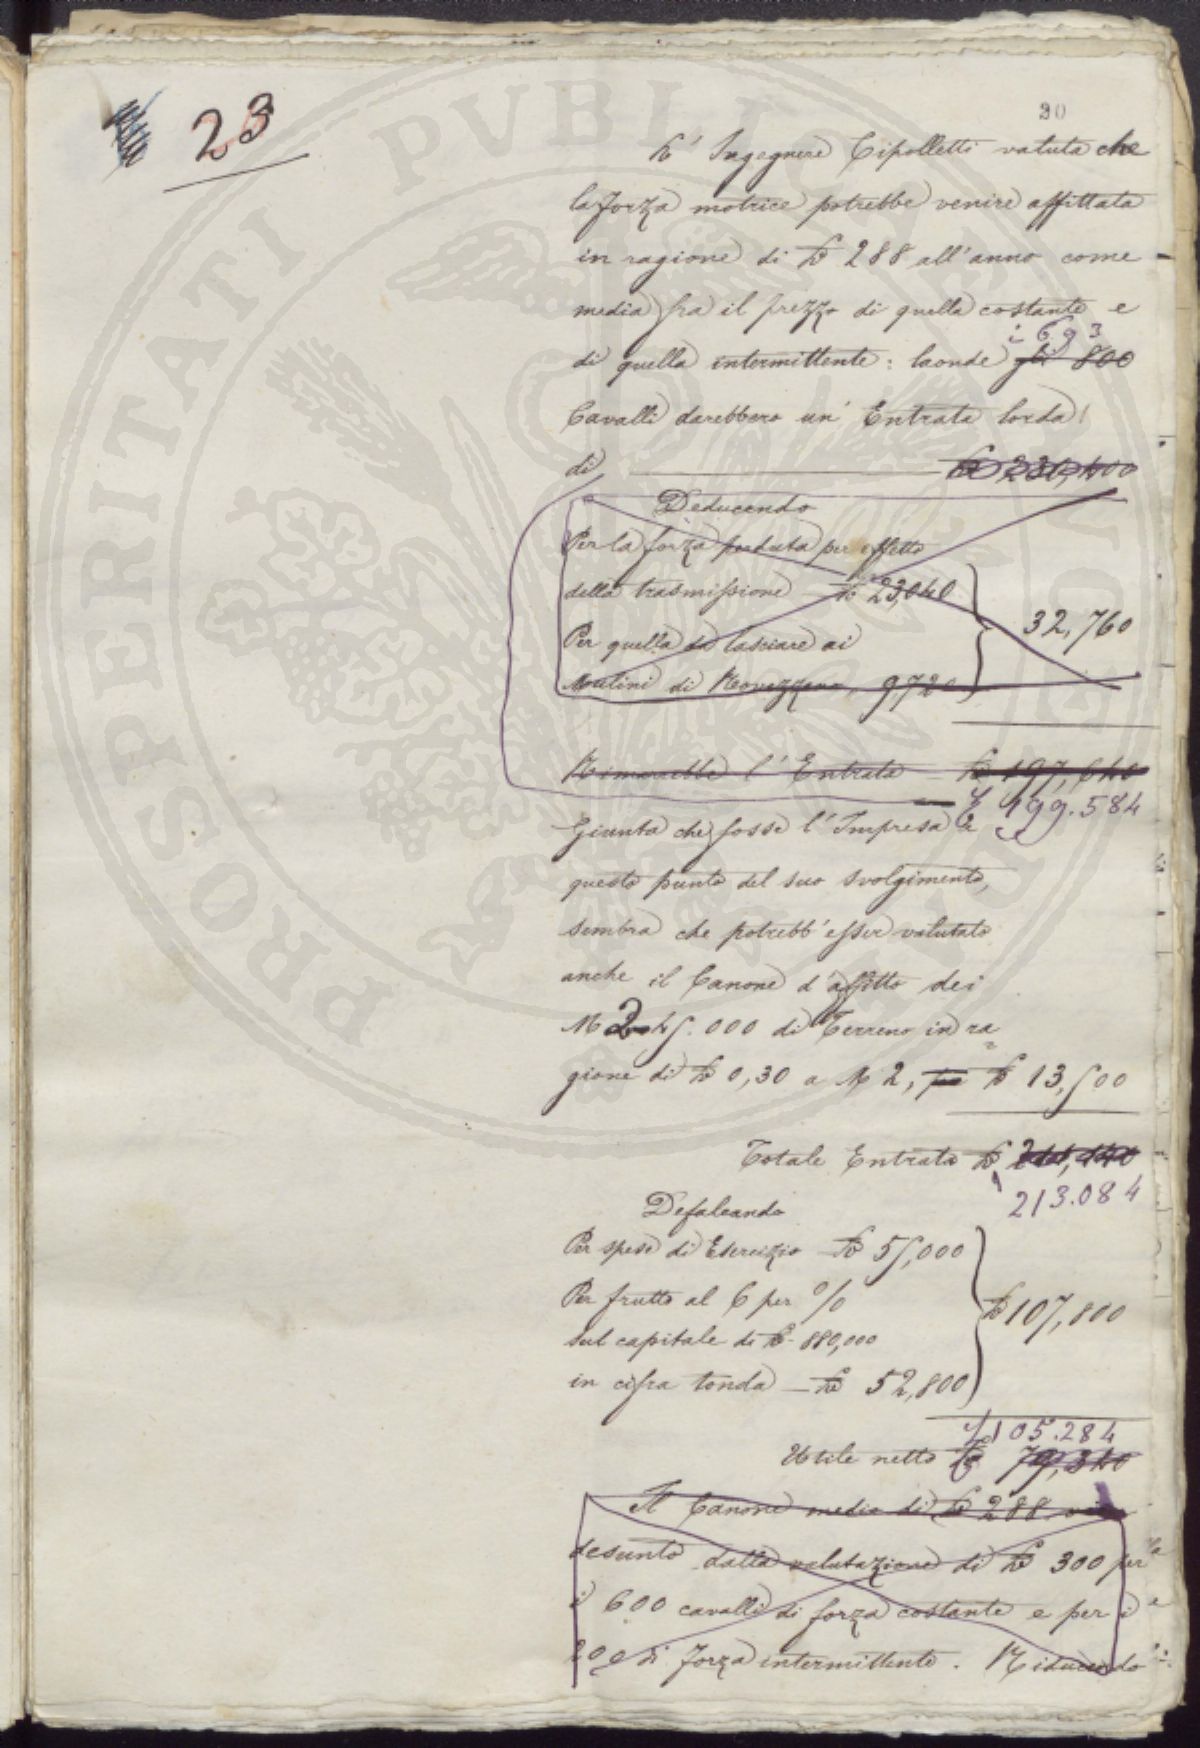 23
20
L' Ingegnere Cipolletti valuta che
la forza motrice potrebbe venire affittata
in ragione di L 288 all'anno come
media fra il prezzo di quella costante e
i 693
di quella intermittente: laonde gli 800
Cavalli darebbero un' Entrata lorda
di L 230,400
Deducendo
Per la forza perduta per effetto
della trasmissione L 23,040
32,760
Per quella da lasciare ai
Mulini di Rovezzano, 9720
Rimarrebbe l' Entrata L 197,640
£ 199.584
Giunta che fosse l'Impresa a
questo punto del suo svolgimento,
sembra che potrebb'esser valutato
anche il Canone d'affitto dei
M 2 45.000 di Terreno in ra=
gione di L 0,30 a M 2, L 13,500
Totale Entrata L 211,140
213.084
Defalcando
Per spese di Esercizio L 55,000
Per frutto al 6 per %
L 107,800
sul capitale di L 880,000
in cifra tonda — L 52,800
£ 105.284
Utile netto L 79,340
Il Canone medio di L 288
desunto dalla valutazione di L 300 per
i 600 cavalli di forza costante e per i
200 di forza intermittente. Riducendo
PROSPERITATI PVBLICAE AVGENDAE